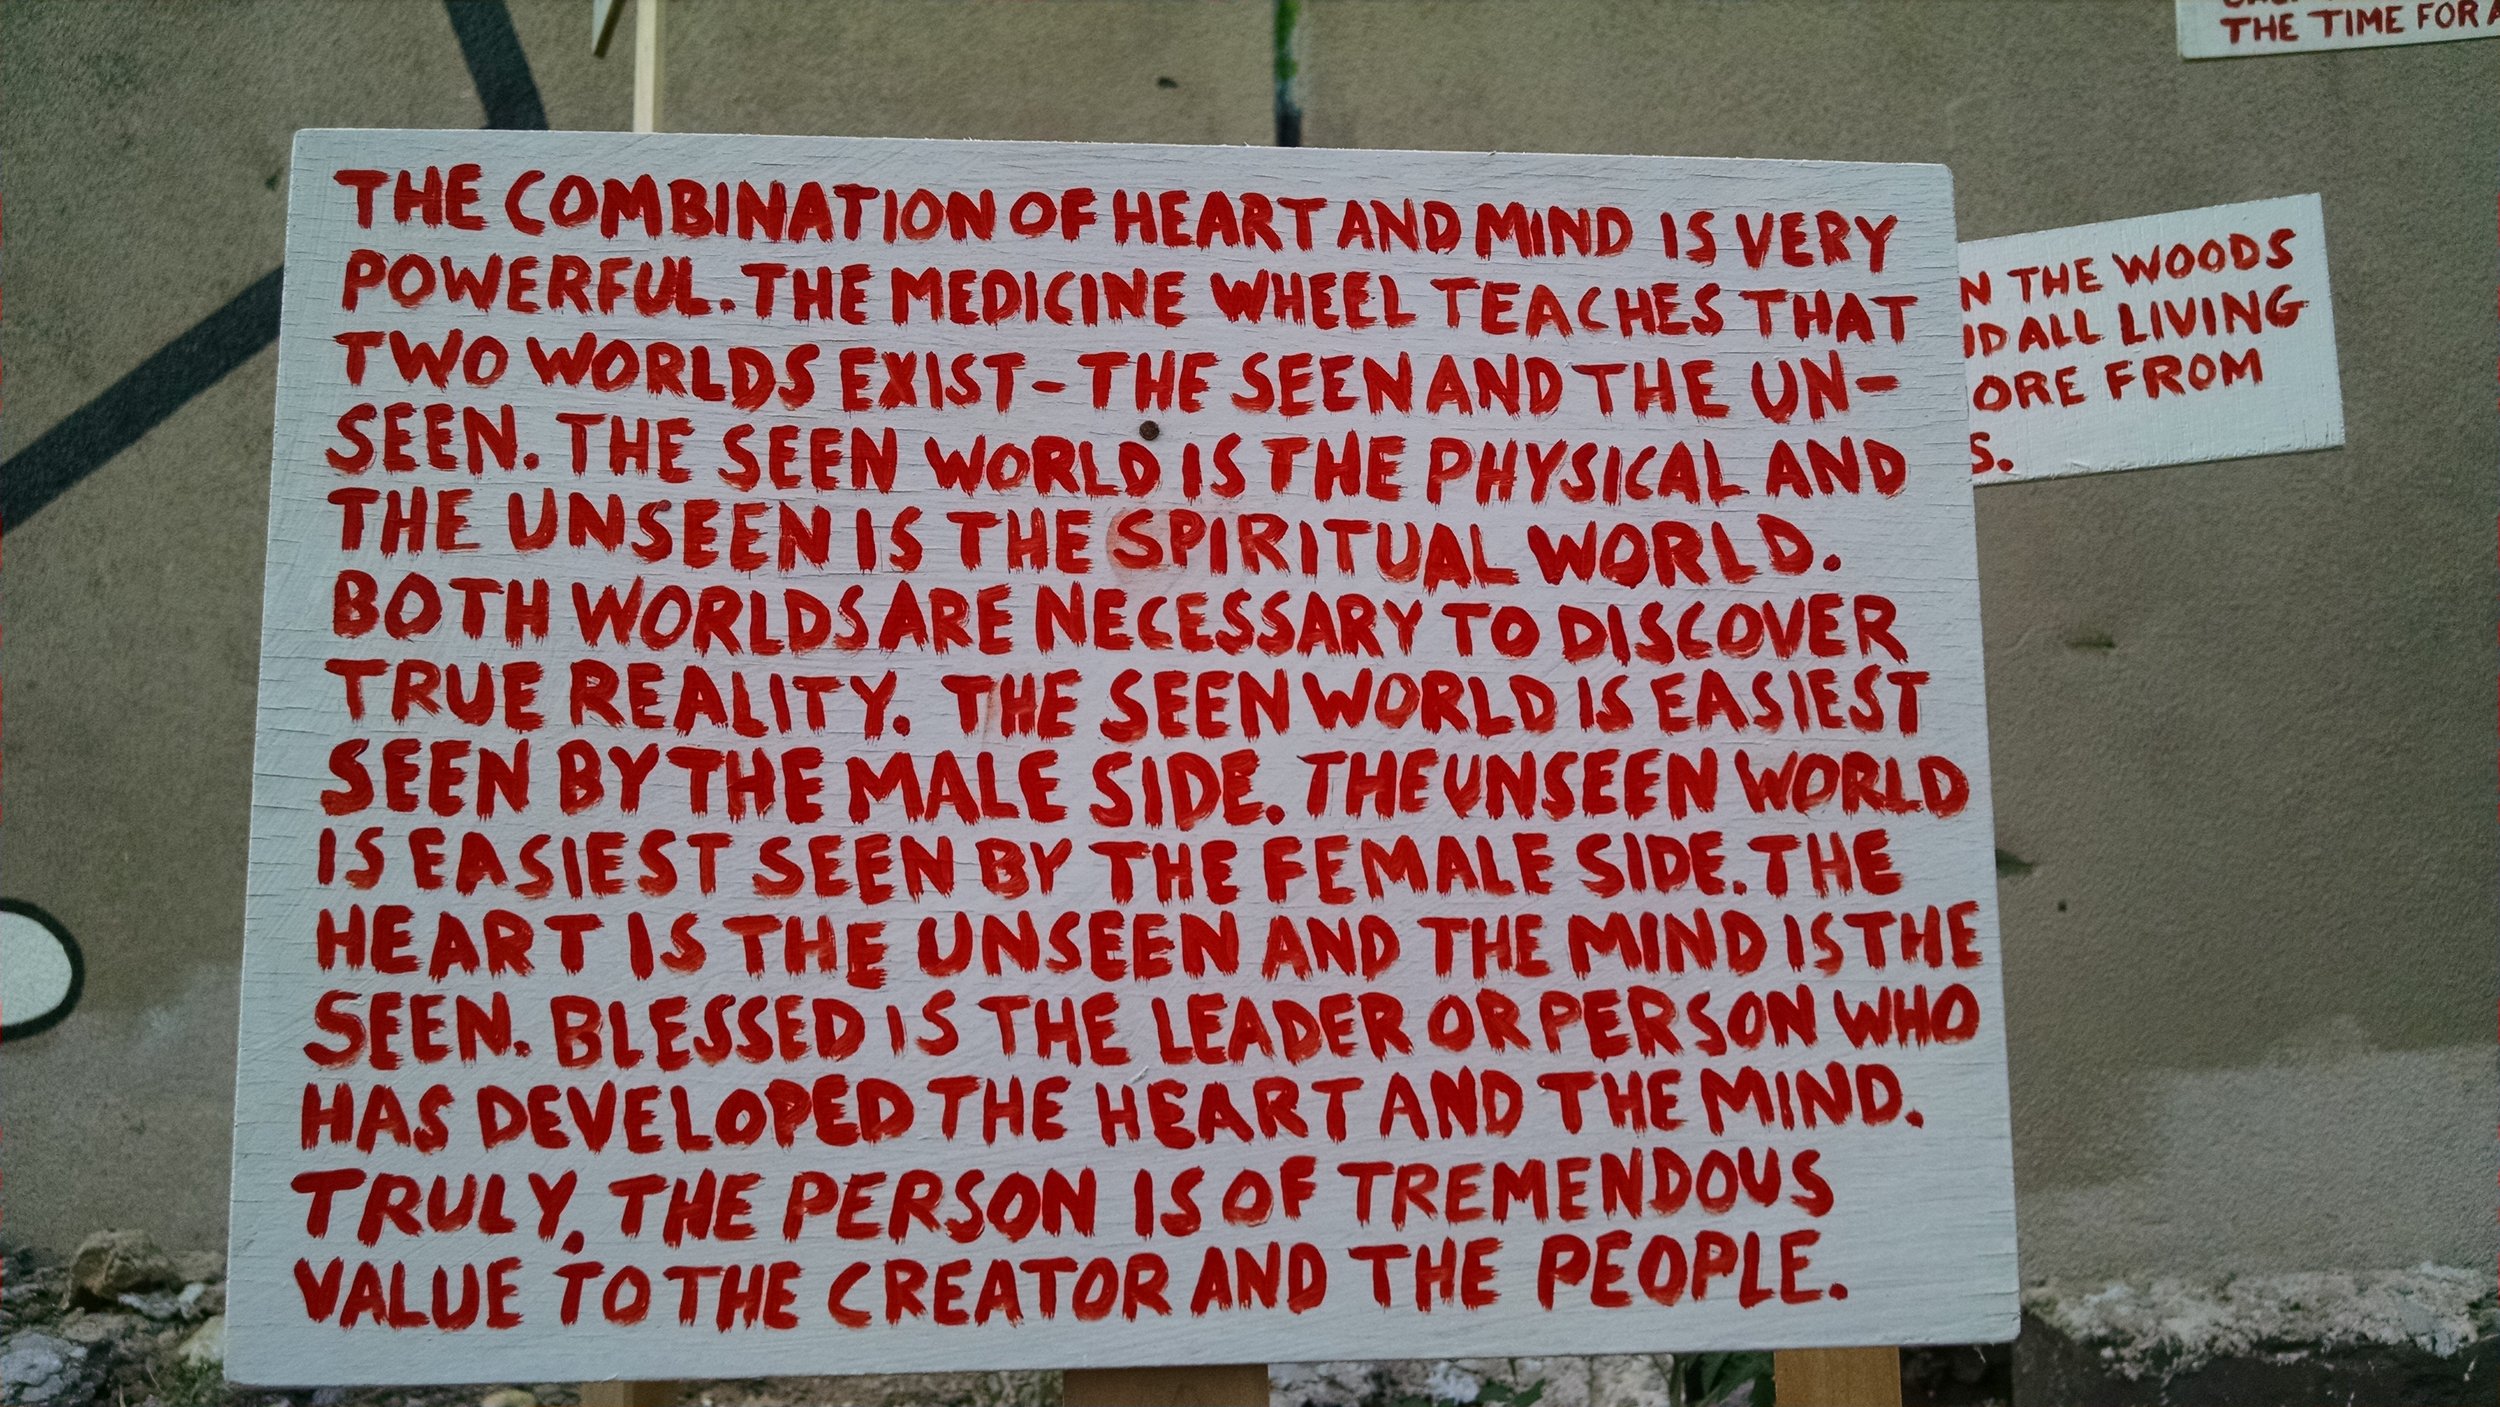 THE COMBINATION OF HEART AND MIND IS VERY
POWERFUL. THE MEDICINE WHEEL TEACHES THAT
TWO WORLDS EXIST - THE SEEN AND THE UN-
SEEN. THE SEEN WORLD IS THE PHYSICAL AND
THE UNSEEN IS THE SPIRITUAL WORLD.
BOTH WORLDS ARE NECESSARY TO DISCOVER
TRUE REALITY. THE SEEN WORLD IS EASIEST
SEEN BY THE MALE SIDE. THE UNSEEN WORLD
IS EASIEST SEEN BY THE FEMALE SIDE. THE
HEART IS THE UNSEEN AND THE MIND IS THE
SEEN. BLESSED IS THE LEADER OR PERSON WHO
HAS DEVELOPED THE HEART AND THE MIND.
TRULY, THE PERSON IS OF TREMENDOUS
VALUE TO THE CREATOR AND THE PEOPLE.
THE TIME FOR
N THE WOODS
ALL LIVING
ORE FROM
S.